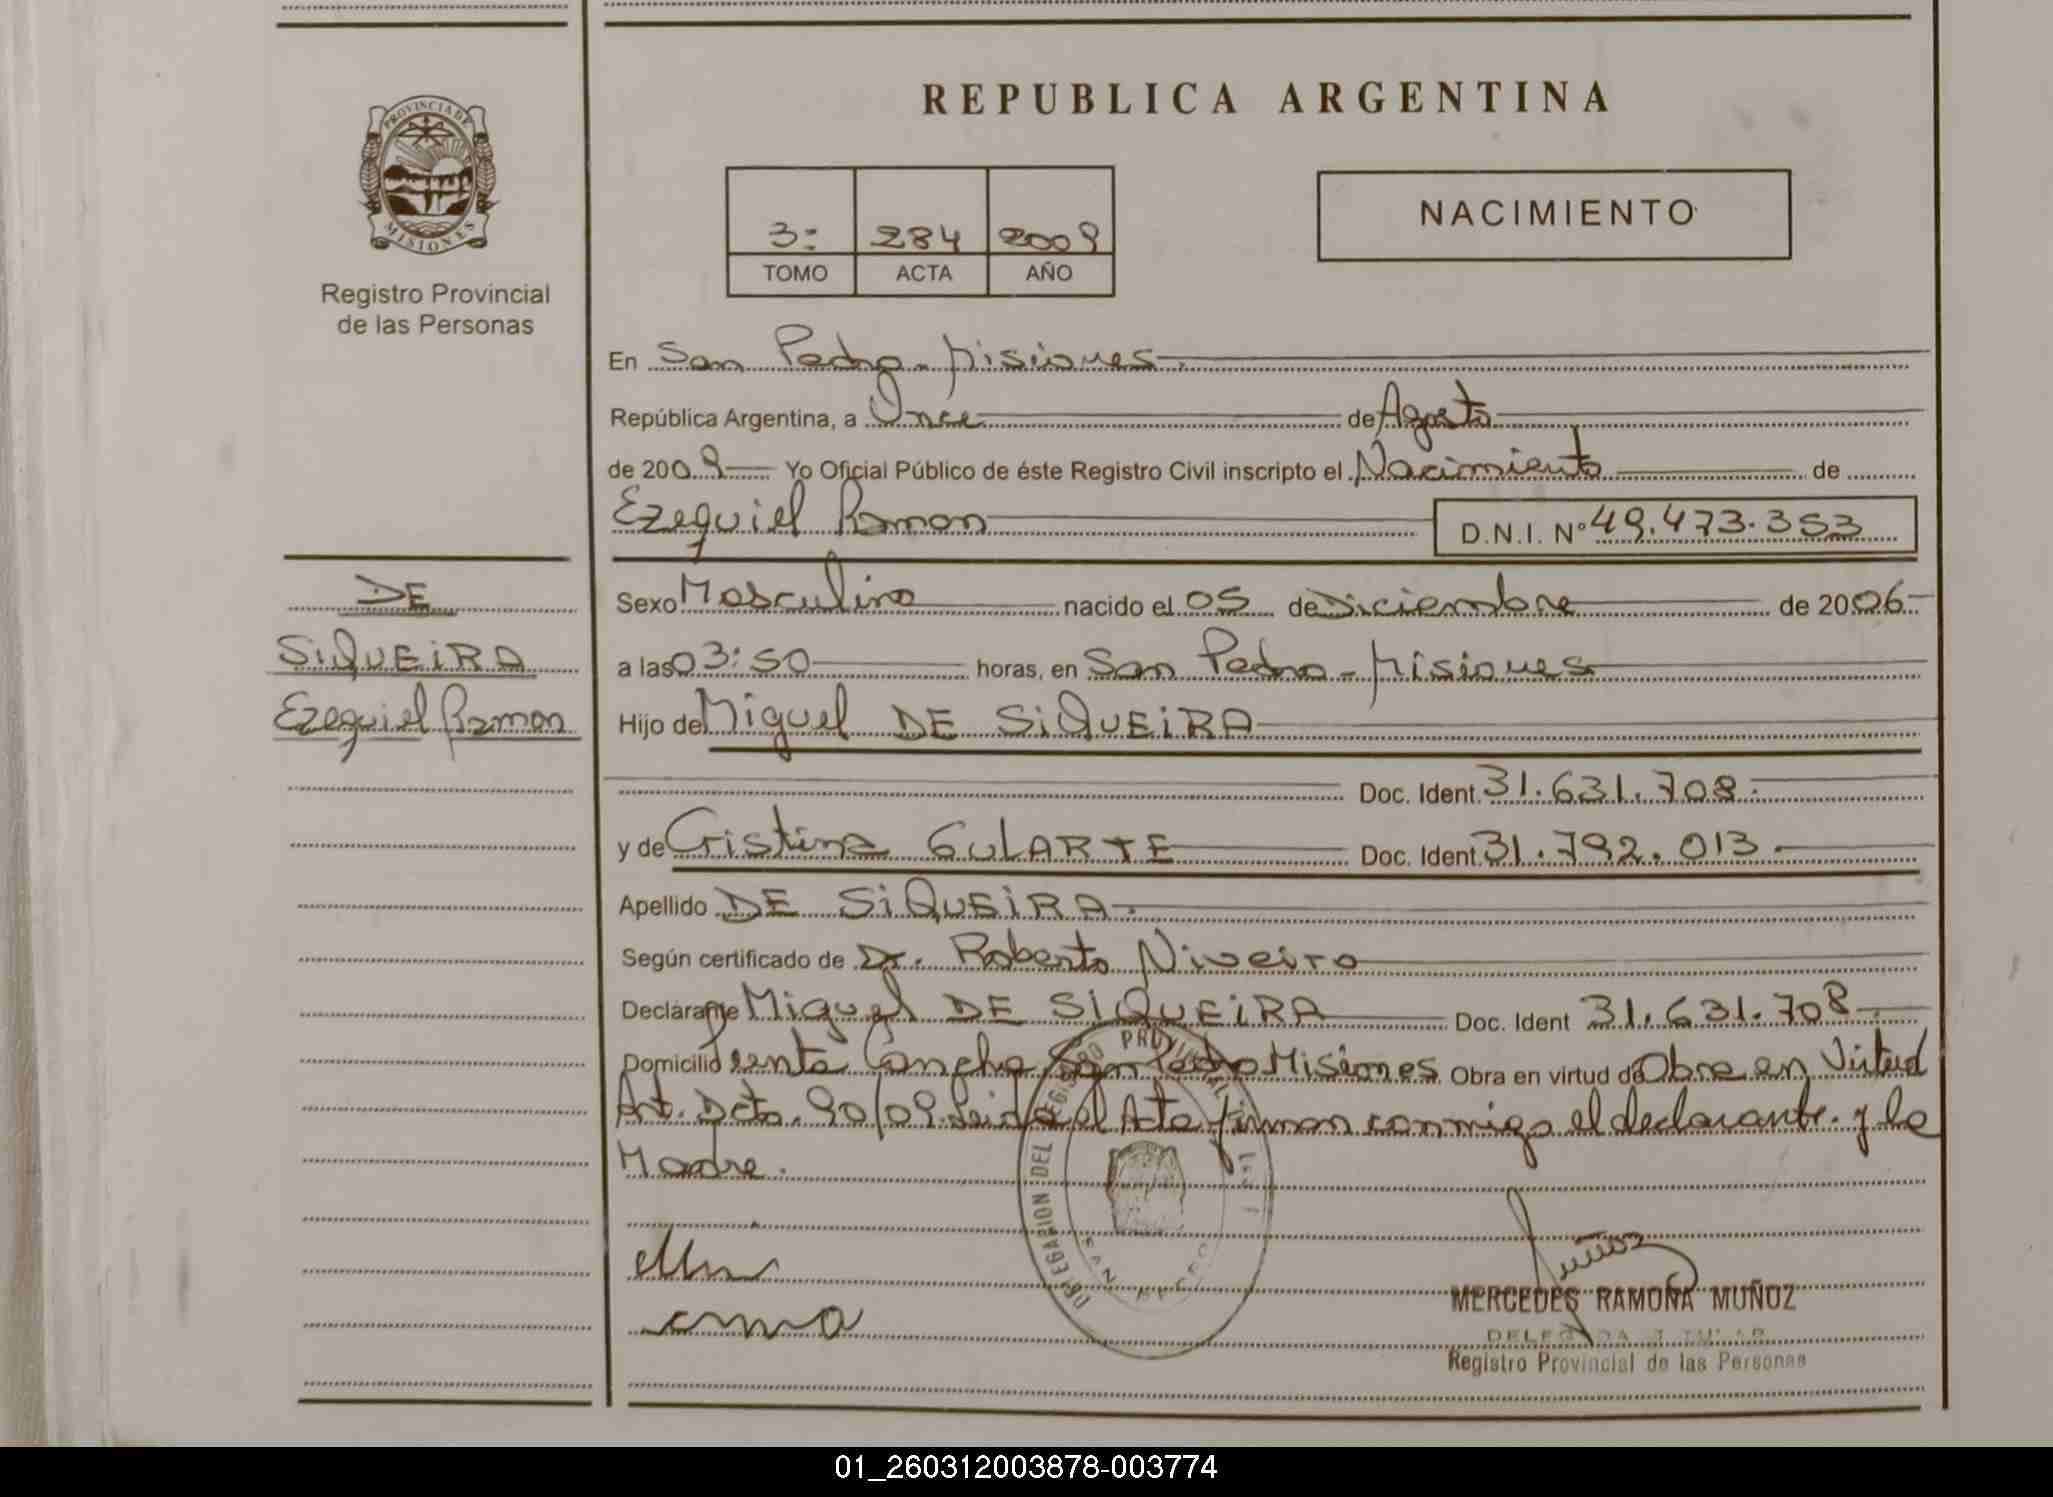 REPUBLICA ARGENTINA
PROVINCIA DE
MISIONES
Registro Provincial
de las Personas
3: 284 2009
TOMO ACTA AÑO
NACIMIENTO
En San Pedro - Misiones.
República Argentina, a Once de Agosto
de 2009 Yo Oficial Público de éste Registro Civil inscripto el Nacimiento de
Ezequiel Ramon D.N.I. Nº 49.473.353
DE
SiQUEiRA
Ezequiel Ramon
Sexo Masculino nacido el 05 de Diciembre de 2006
a las 03:50 horas, en San Pedro - Misiones
Hijo de Miguel DE SiQUEiRA
Doc. Ident. 31.631.708.
y de Cristina GULARTE Doc. Ident. 31.792.013.
Apellido DE SiQUEiRA.
Según certificado de Dr. Roberto Niveiro
Declarante Miguel DE SiQUEiRA Doc. Ident 31.631.708
Domicilio Concha San Pedro Misiones Obra en virtud de Obra en Virtud
Art. Dcto. 90/09. Leida el Acta firman conmigo el declarante. y la
Madre.
DELEGACION DEL REGISTRO
SAN PEDRO
Muñoz
MERCEDES RAMONA MUÑOZ
DELEGADA TITULAR
Registro Provincial de las Personas
01_260312003878-003774